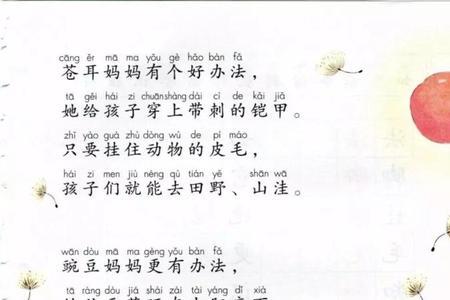 cāng ěr mā ma yǒu gè hǎo bàn fǎ
苍耳妈妈有个好办法，
tā gěi hái zi chuān shàng dài cì de kǎi jiǎ
她给孩子穿上带刺的铠甲。
zhǐ yào guà zhù dòng wù de pí máo
只要挂住动物的皮毛，
hái zi men jiù néng qù tián yě shān wā
孩子们就能去田野、山洼。
wān dòu mā ma gèng yǒu bàn fǎ
豌豆妈妈更有办法，
tā ràng dòu jiá shài zài tài yáng dǐ xià